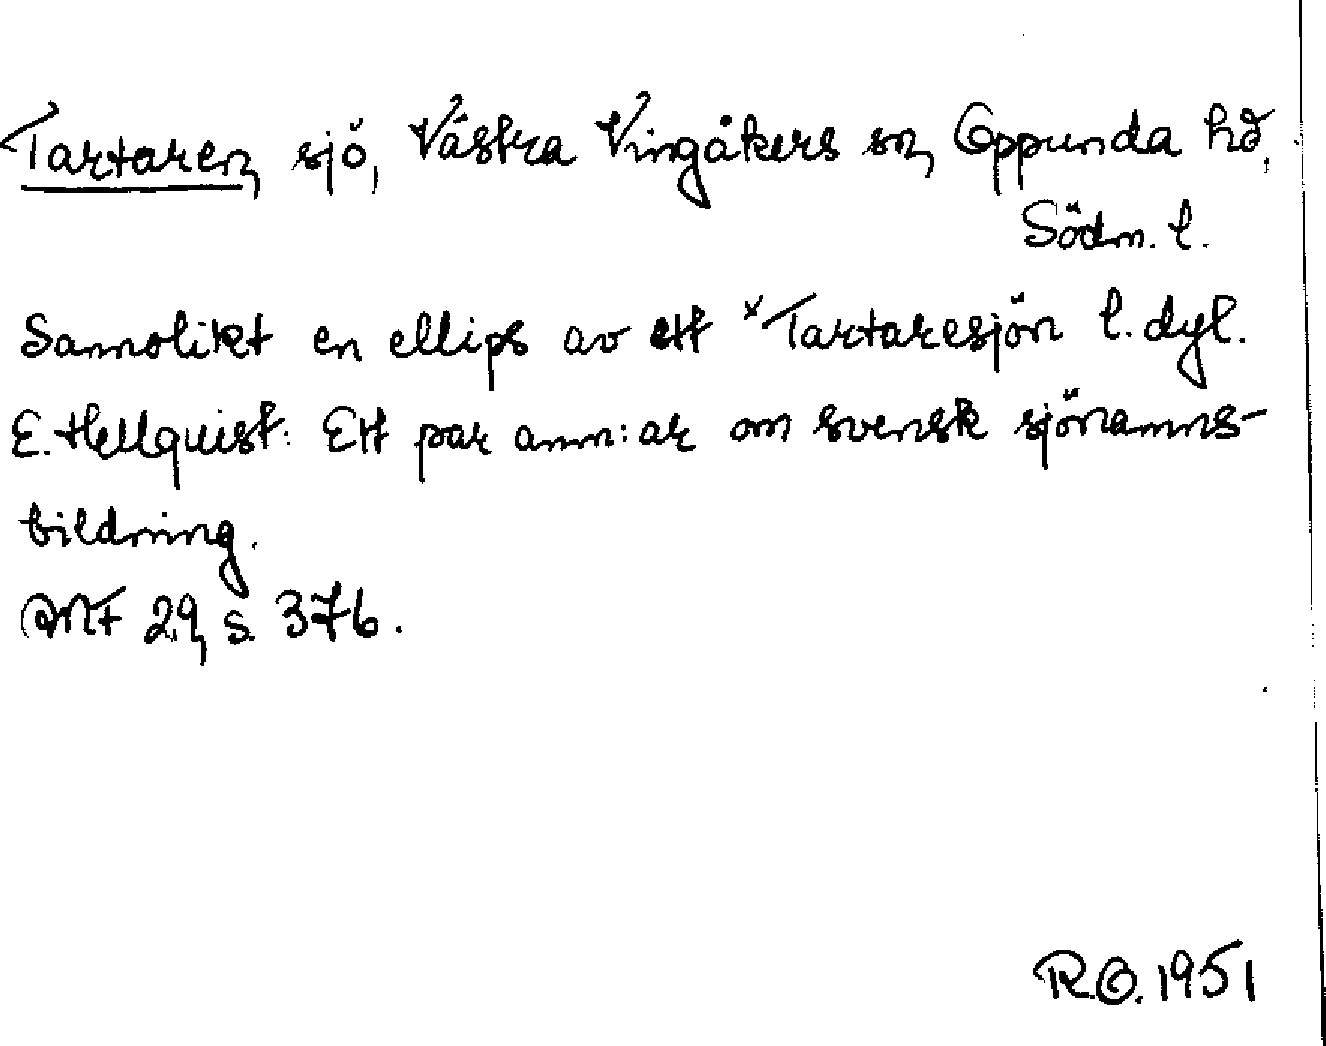 Tartaren, sjö, Västra Vingåkers sn, Oppunda hd,
Södm. l.
Sannolikt en ellips av ett *Tartaresjön l. dyl.
E. Hellquist: Ett par anm:ar om svensk sjönamns-
bildning.
ANF 29, s. 376.
R.O. 1951